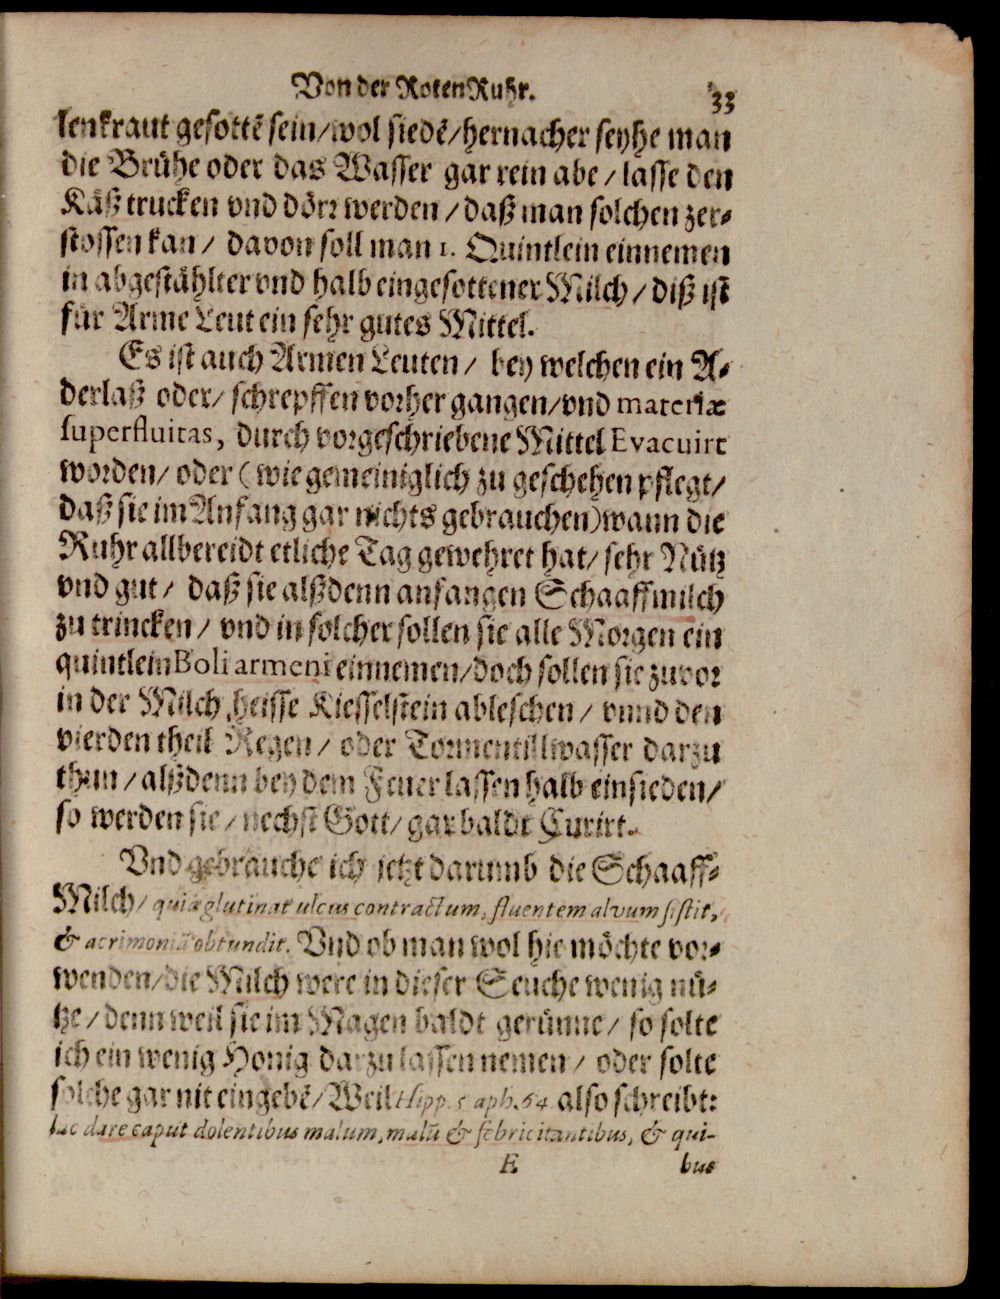 Von der Roten Ruhr. 33
lenkraut gesottē sein/wol siedē/hernacher seyhe man
die Brühe oder das Wasser gar rein abe/ lasse den
Käß trucken vnd dörr werden/daß man solchen zer-
stossen kan/ davon soll man 1. Quintlein einnemen
in abgestählter vnd halb eingesottener Milch/ diß ist
für Arme Leut ein sehr gutes Mittel.
Es ist auch Armen Leuten/ bey welchen ein A-
derlaß oder/ schrepffen vorher gangen/vnd materiæ
superfluitas, durch vorgeschriebene Mittel Evacuirt
worden/ oder (wie gemeiniglich zu geschehen pflegt/
daß sie im Anfang gar nichts gebrauchen) wann die
Ruhr allbereidt etliche Tag gewehret hat/ sehr Nütz
vnd gut/ daß sie alßdenn anfangen Schaaffmilch
zu trincken/ vnd in solcher sollen sie alle Morgen ein
quintlein Boli armeni einnemen/doch sollen sie zuvor
in der Milch heisse Kiesselstein ableschen/ vnnd den
vierden theil Regen/ oder Tormentillwasser darzu
thun/alßdenn bey dem Feuer lassen halb einsieden/
so werden sie/nechst Gott/ gar baldt Curirt.
Vnd gebrauche ich jetzt darumb die Schaaff-
Milch/ quia glutinat ulcus contractum, fluentem alvum sistit,
& acrimoniā obtundit. Vnd ob man wol hie möchte vor-
wenden/die Milch were in dieser Seuche wenig nü-
tze/denn weil sie im Magen baldt gerünne/ so solte
ich ein wenig Honig darzu lassen nemen/ oder solte
solche gar nit eingebē/Weil Hipp. 5 aph. 64 also schreibt:
lac dare caput dolentibus malum, malū & febricitantibus, & qui-
E bus